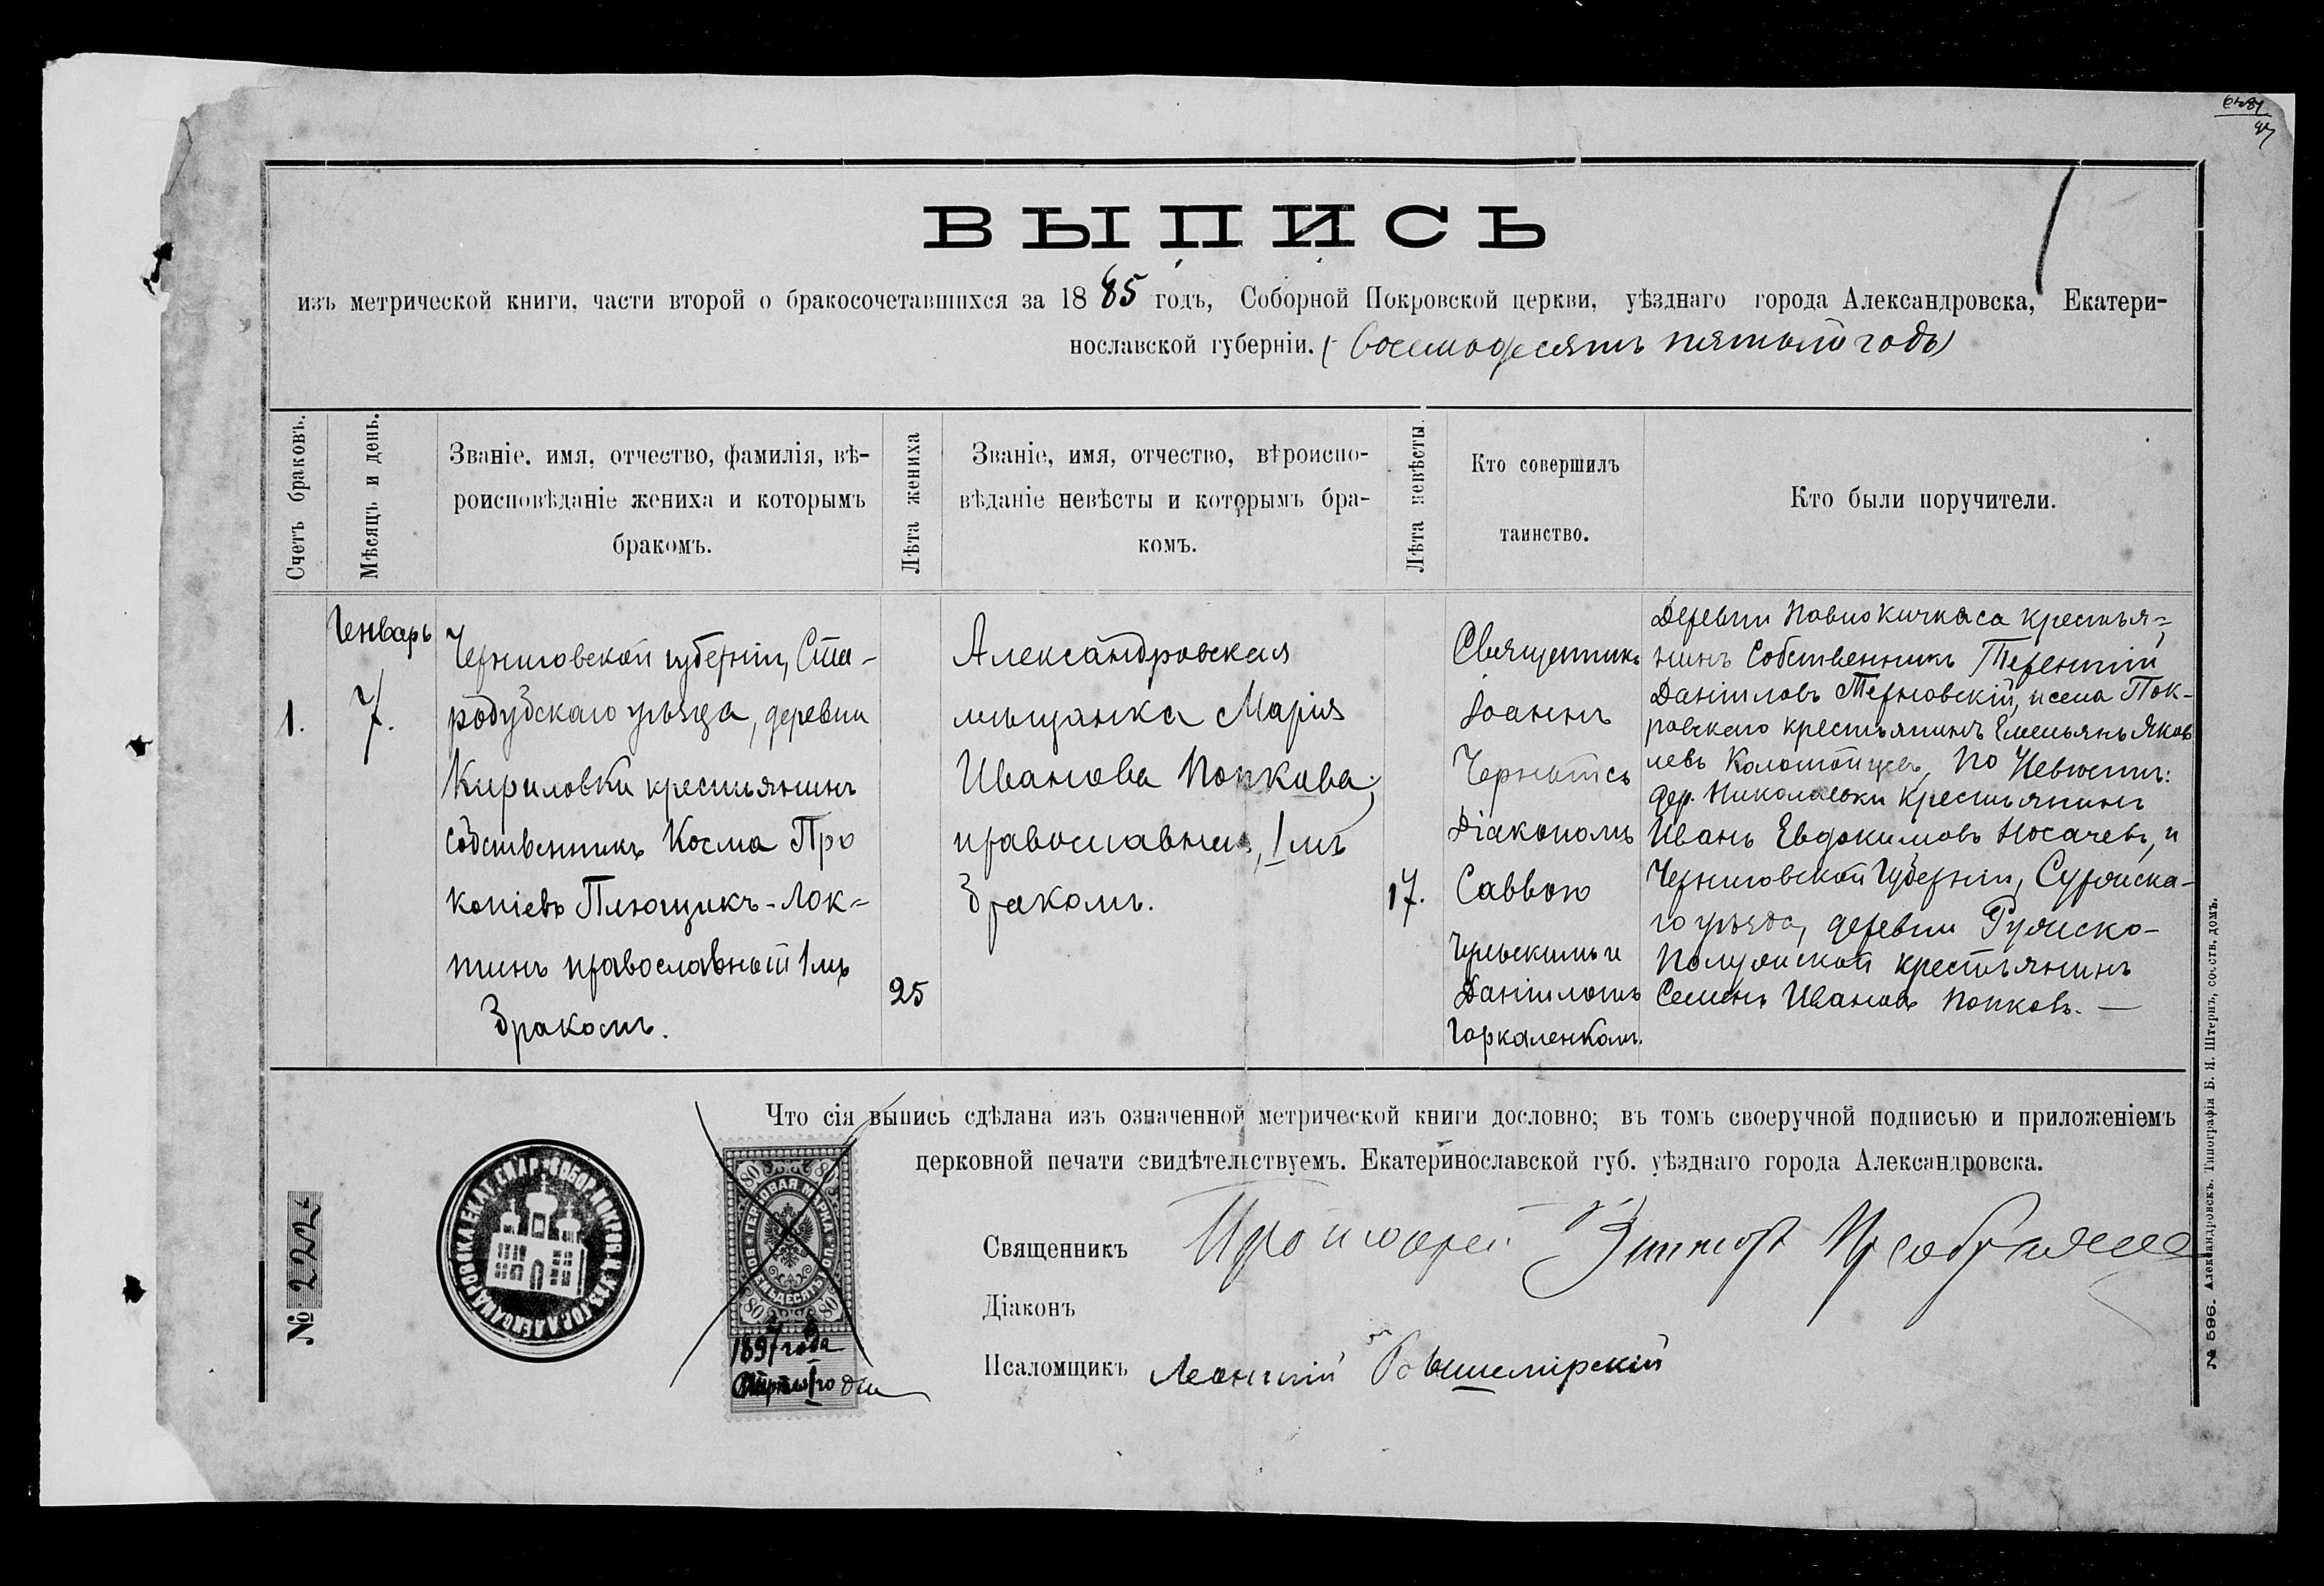 ВЫПИСЬ
изъ метрической книги, части второй о бракосочетавшихся за 1885 годъ, Соборной Покровской церкви, уѣзднаго города Александровска, Екатери-
нославской губерніи. (восемьдесятъ пятый годъ)
Счетъ браковъ.
Мѣсяцъ и день.
Званіе, имя, отчество, фамилія, вѣ-
роисповѣданіе жениха и которымъ
бракомъ.
Лѣта жениха
Званіе, имя, отчество, вѣроиспо-
вѣданіе невѣсты и которымъ бра-
комъ.
Лѣта невѣсты.
Кто совершилъ
таинство.
Кто были поручители.
1.
Генварь
7.
Черниговской губерніи, Ста-
родубскаго уѣзда, деревни
Кириловки крестьянинъ
собственникъ Косма Про
копіевъ Плющикъ-Лок=
тинъ православный 1мъ
бракомъ.
25
Александровская
мѣщанка Марія
Иванова Попкова,
православная, Iмъ
бракомъ.
17.
Священникъ
Іоаннъ
Діакономъ
Саввою
и
Даніиломъ
Горкаленкомъ.
Деревни Павлокичкаса крестья=
нинъ Собственникъ Терентій
Даніиловъ Терновскій, и села Пок-
ровскаго крестьянинъ Емельянъ Яков
левъ Коломойцевъ, По Невѣстѣ:
дер. Николаевки крестьянинъ
Иванъ Евдокимовъ Носачевъ, и
Черниговской Губерніи, Суражска-
го уѣзда, деревни
крестьянинъ
Семенъ Ивановъ Попковъ. —
Что сія выпись сдѣлана изъ означенной метрической книги дословно; въ томъ своеручной подписью и приложеніемъ
церковной печати свидѣтельствуемъ. Екатеринославской губ. уѣзднаго города Александровска.
№ 222
ГЕРБОВАЯ МАРКА
ВОСЕМЬДЕСЯТЪ
80 80
80 80
1897 года
Марта 1го дня
Священникъ Протоіерей
Діаконъ
Псаломщикъ Леонтій
№ 596. Александровскъ. Типографія Б. Я. Штернъ, собств. домъ.